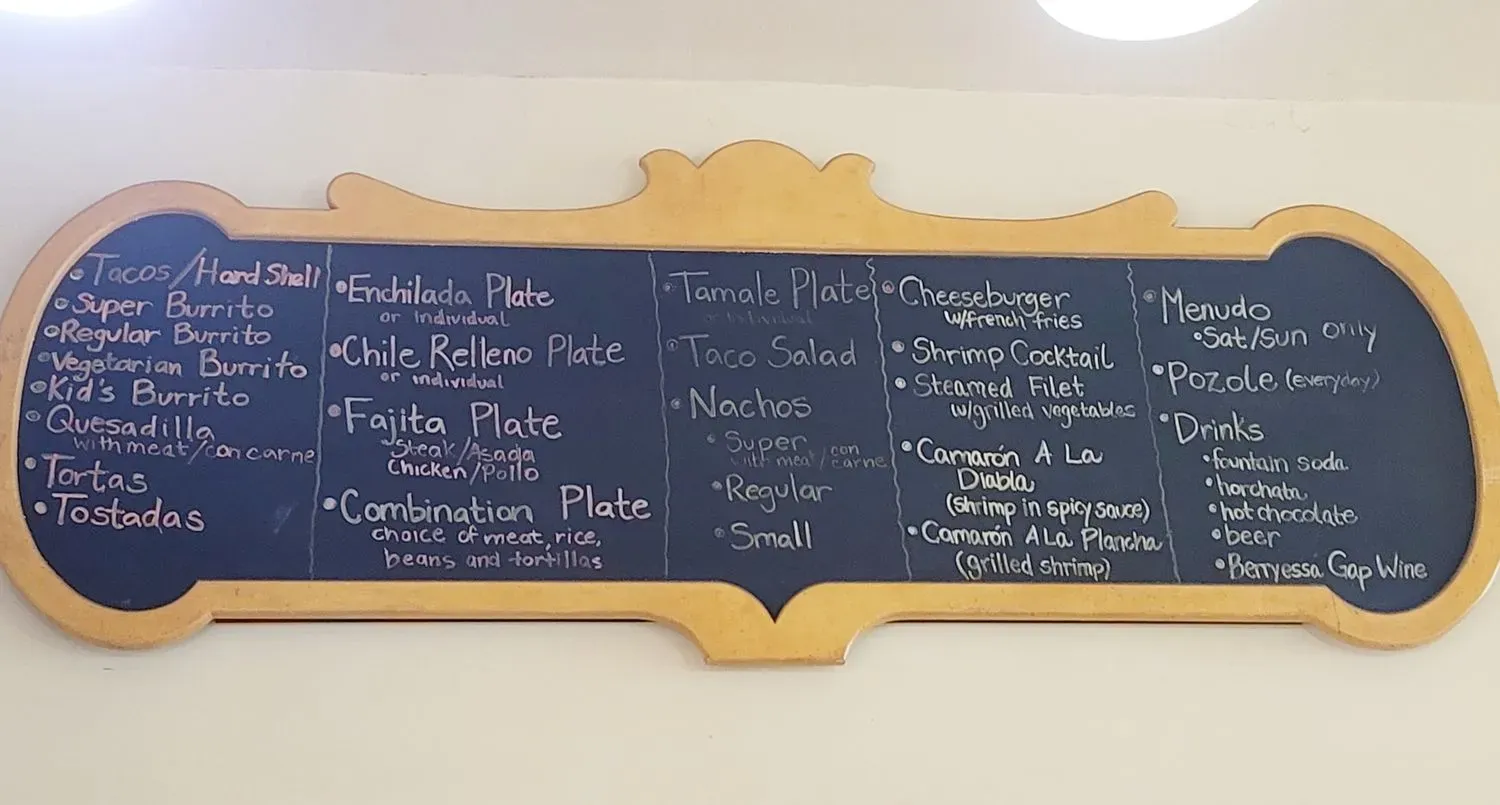 •Tacos/Hard Shell
•Super Burrito
•Regular Burrito
•Vegetarian Burrito
•Kid's Burrito
•Quesadilla
with meat/con carne
•Tortas
•Tostadas
•Enchilada Plate
or individual
•Chile Relleno Plate
or individual
•Fajita Plate
Steak/Asada
Chicken/Pollo
•Combination Plate
choice of meat, rice,
beans and tortillas
•Tamale Plate
or individual
•Taco Salad
•Nachos
•Super
with meat/con carne
•Regular
•Small
•Cheeseburger
w/french fries
•Shrimp Cocktail
•Steamed Filet
w/grilled vegetables
•Camarón A La
Diabla
(shrimp in spicy sauce)
•Camarón A La Plancha
(grilled shrimp)
•Menudo
•Sat/Sun only
•Pozole (everyday)
•Drinks
•fountain soda
•horchata
•hot chocolate
•beer
•Berryessa Gap Wine